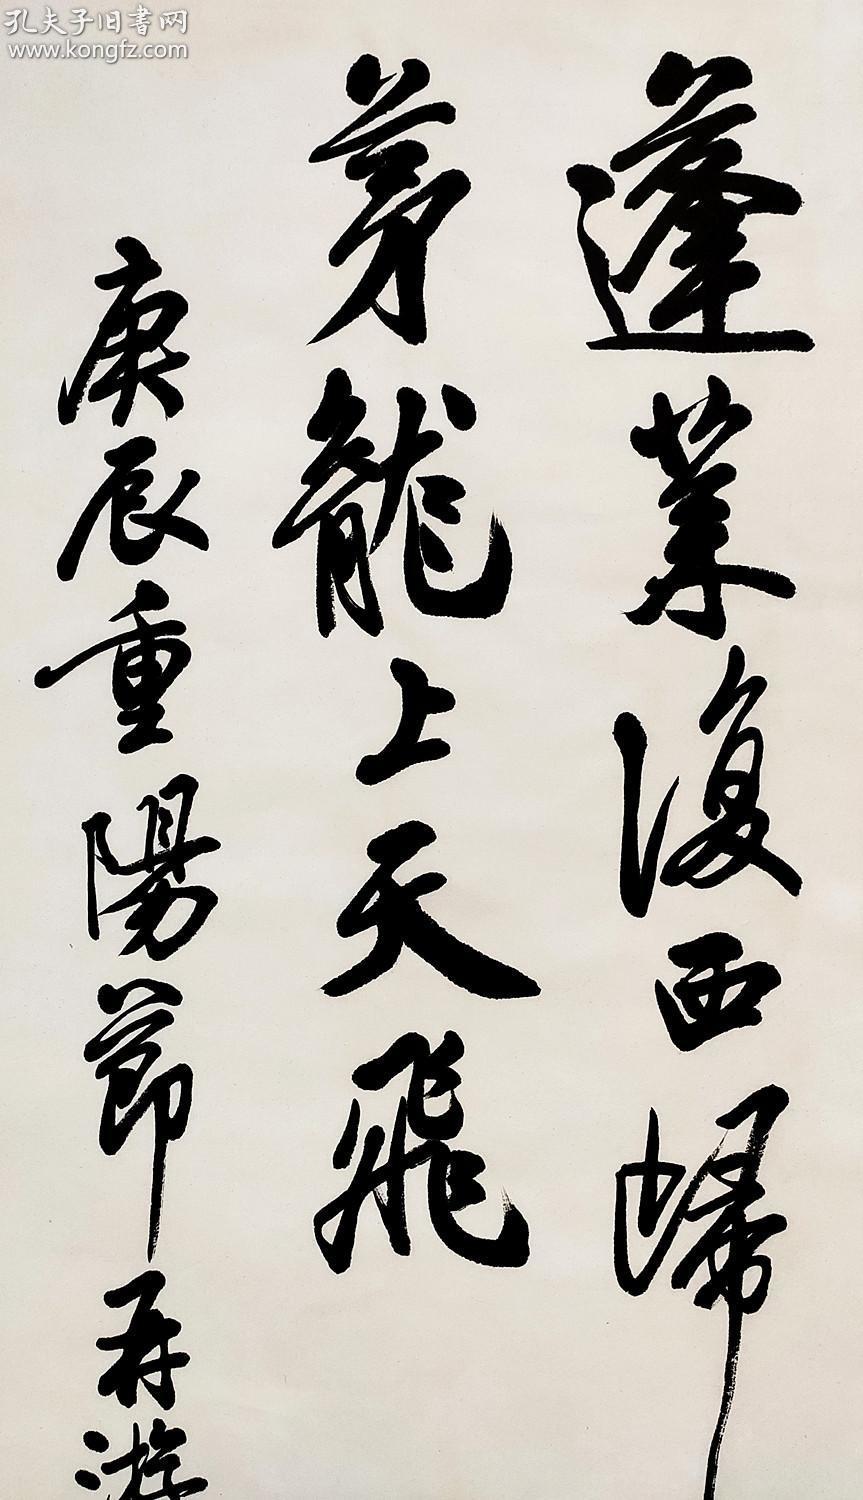 孔夫子旧書网
www.kongfz.com
蓬莱復西歸
茅龍上天飛
庚辰重陽節再游